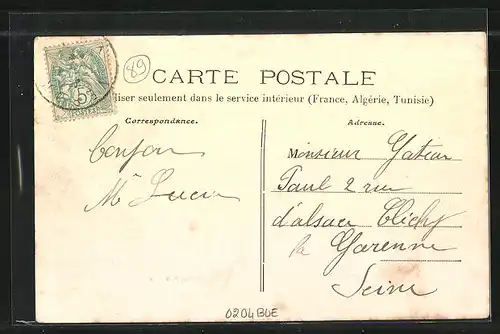 89
CARTE POSTALE
iser seulement dans le service intérieur (France, Algérie, Tunisie)
Correspondance.
Adresse.
5
Bonjour
Mr Lucien
Monsieur Gateau
Paul 2 rue
d'alsace Clichy
la Garenne
Seine
0204BUE